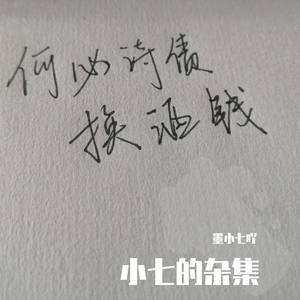 何必诗债
换酒钱
墨小七吖
小七的杂集